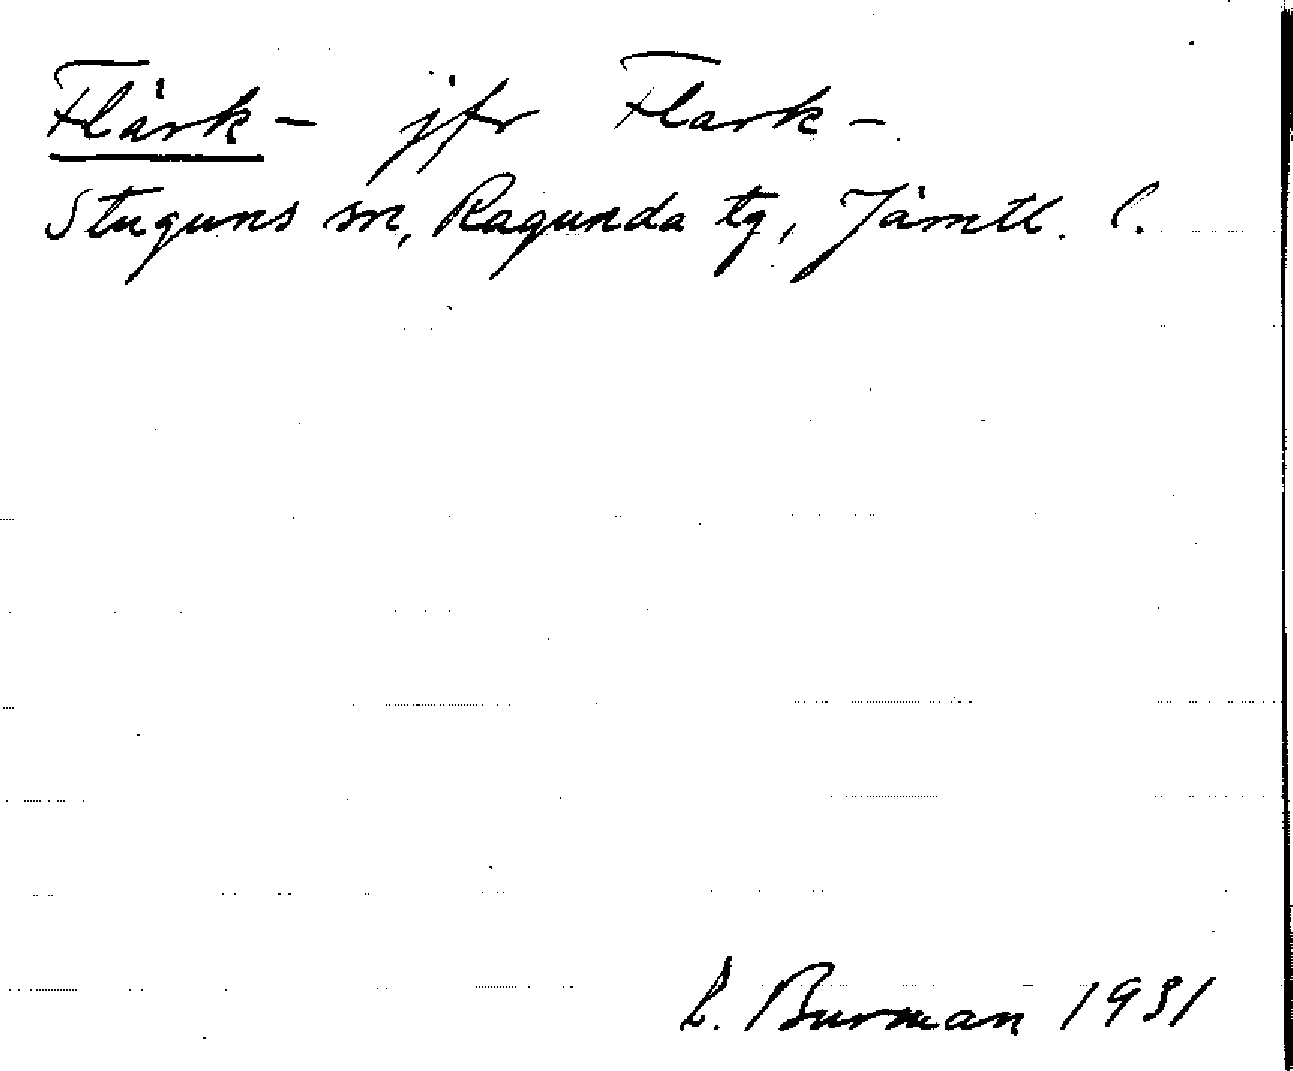 Flärk- jfr Flark-
Stuguns sn, Ragunda tg, Jämtl. l.
L. Burman 1931